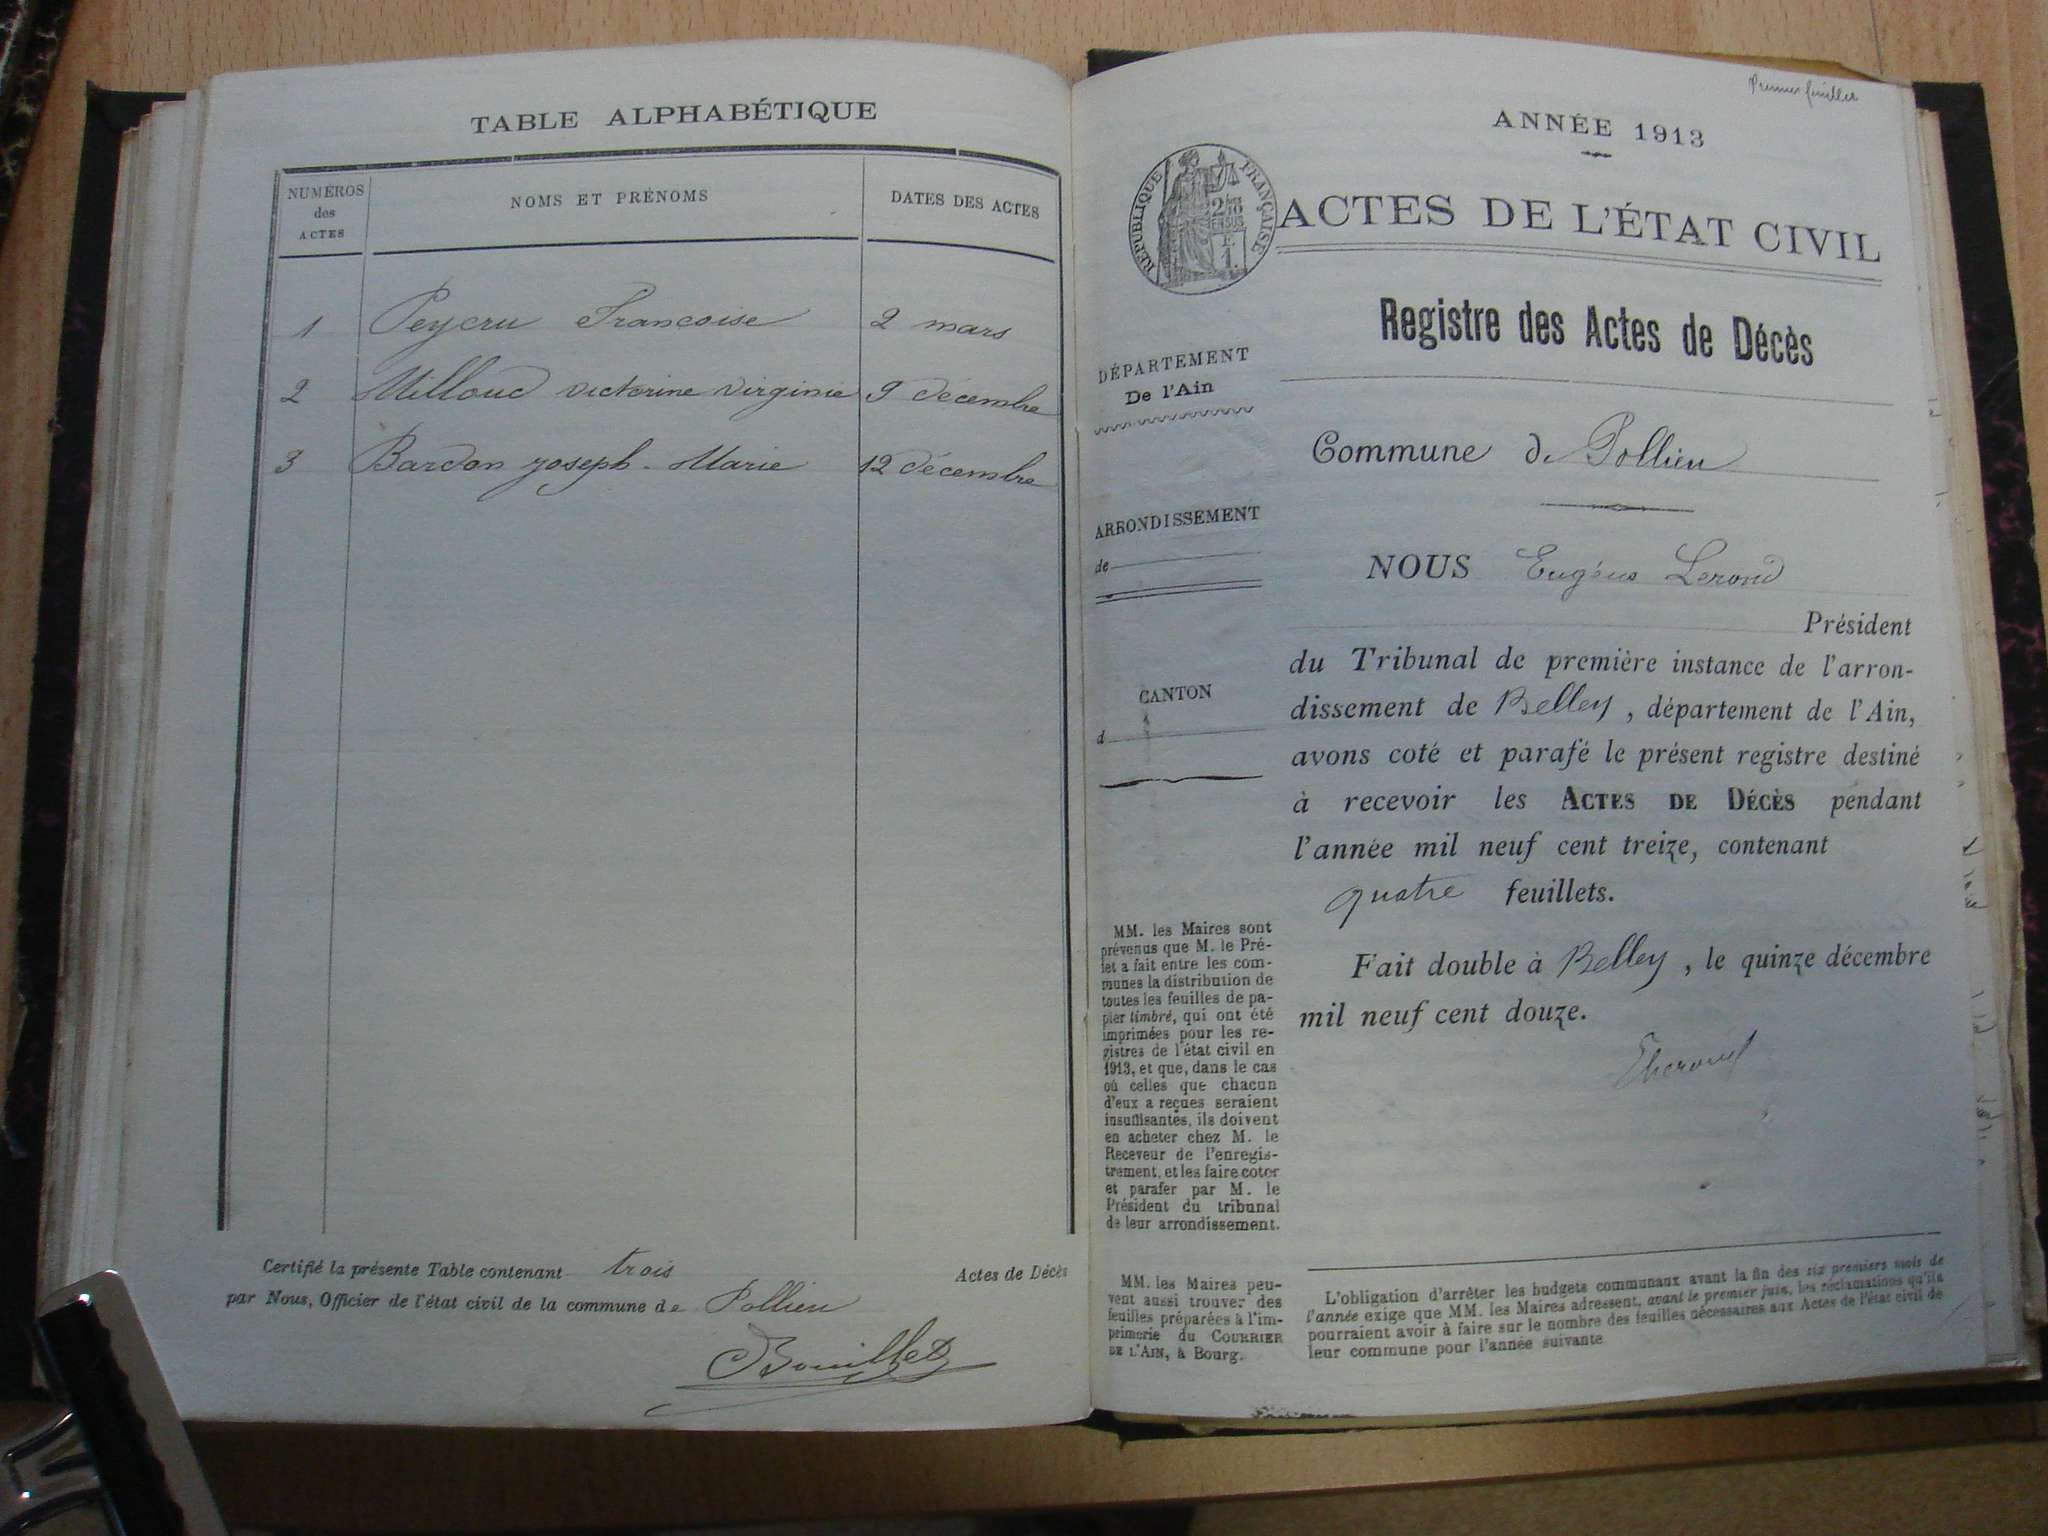 TABLE ALPHABÉTIQUE
NUMÉROS
des
ACTES
NOMS ET PRÉNOMS
DATES DES ACTES
1 Peycru Françoise 2 mars
2 Milloud victorine virginie 9 décembre
3 Bardon joseph-Marie 12 décembre
Certifié la présente Table contenant trois Actes de Décès
par Nous, Officier de l'état civil de la commune de Pollieu
Bouillet
Premier feuillet
ANNÉE 1913
RÉPUBLIQUE FRANÇAISE
ACTES DE L'ÉTAT CIVIL
Registre des Actes de Décès
DÉPARTEMENT
De l'Ain
Commune de Pollieu
ARRONDISSEMENT
de
CANTON
d
NOUS Eugène Lerond
Président
du Tribunal de première instance de l'arron-
dissement de Belley, département de l'Ain,
avons coté et parafé le présent registre destiné
à recevoir les ACTES DE DÉCÈS pendant
l'année mil neuf cent treize, contenant
quatre feuillets.
Fait double à Belley, le quinze décembre
mil neuf cent douze.
MM. les Maires sont
prévenus que M. le Pré-
fet a fait entre les com-
munes la distribution de
toutes les feuilles de pa-
pier timbré, qui ont été
imprimées pour les re-
gistres de l'état civil en
1913, et que, dans le cas
où celles que chacun
d'eux a reçues seraient
insuffisantes, ils doivent
en acheter chez M. le
Receveur de l'enregis-
trement, et les faire coter
et parafer par M. le
Président du tribunal
de leur arrondissement.
MM. les Maires peu-
vent aussi trouver des
feuilles préparées à l'im-
primerie du COURRIER
DE L'AIN, à Bourg.
L'obligation d'arrêter les budgets communaux avant la fin des six premiers mois de
l'année exige que MM. les Maires adressent, avant le premier juin, les réclamations qu'ils
pourraient avoir à faire sur le nombre des feuilles nécessaires aux Actes de l'état civil de
leur commune pour l'année suivante